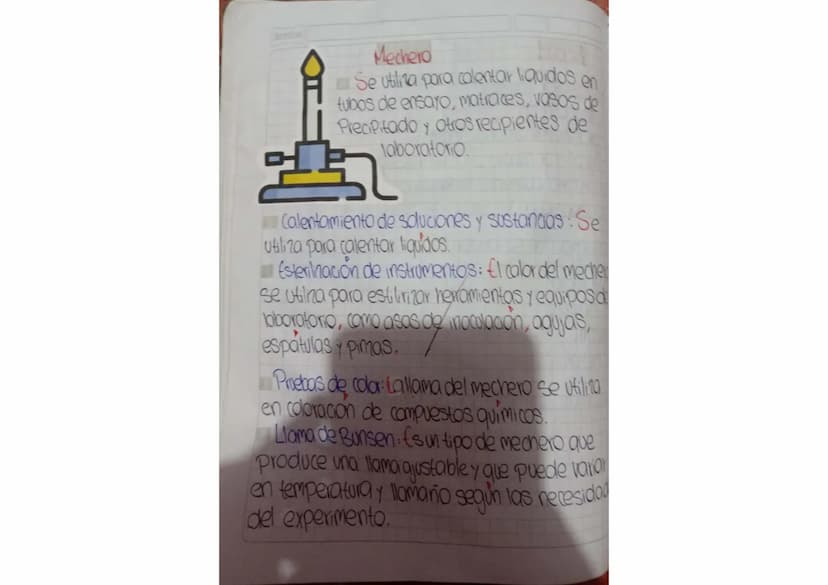 Mechero
Se utiliza para calentar liquidos en
tubos de ensayo, matraces, vasos de
Precipitado y otros recipientes de
laboratorio.
Calentamiento de soluciones y sustancias: Se
utiliza para calentar liquidos.
Esterilización de instrumentos: El calor del meche
se utiliza para estilirizar herramientas y equipos d
laboratorio, como asas de inoculación, agujas,
espátulas y pinzas.
Pruebas de color: La llama del mechero se utiliza
en coloración de compuestos químicos.
Llama de Bunsen: Es un tipo de mechero que
produce una llama ajustable y que puede varar
en temperatura y llamaño según las necesidad
del experimento.